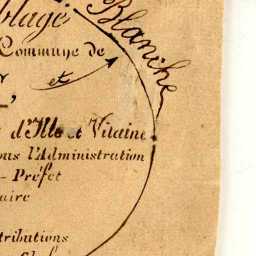 blage
Blanche
Commune de
et
d'Ille et Vilaine
ous l'Administration
- Préfet
aire
tributions